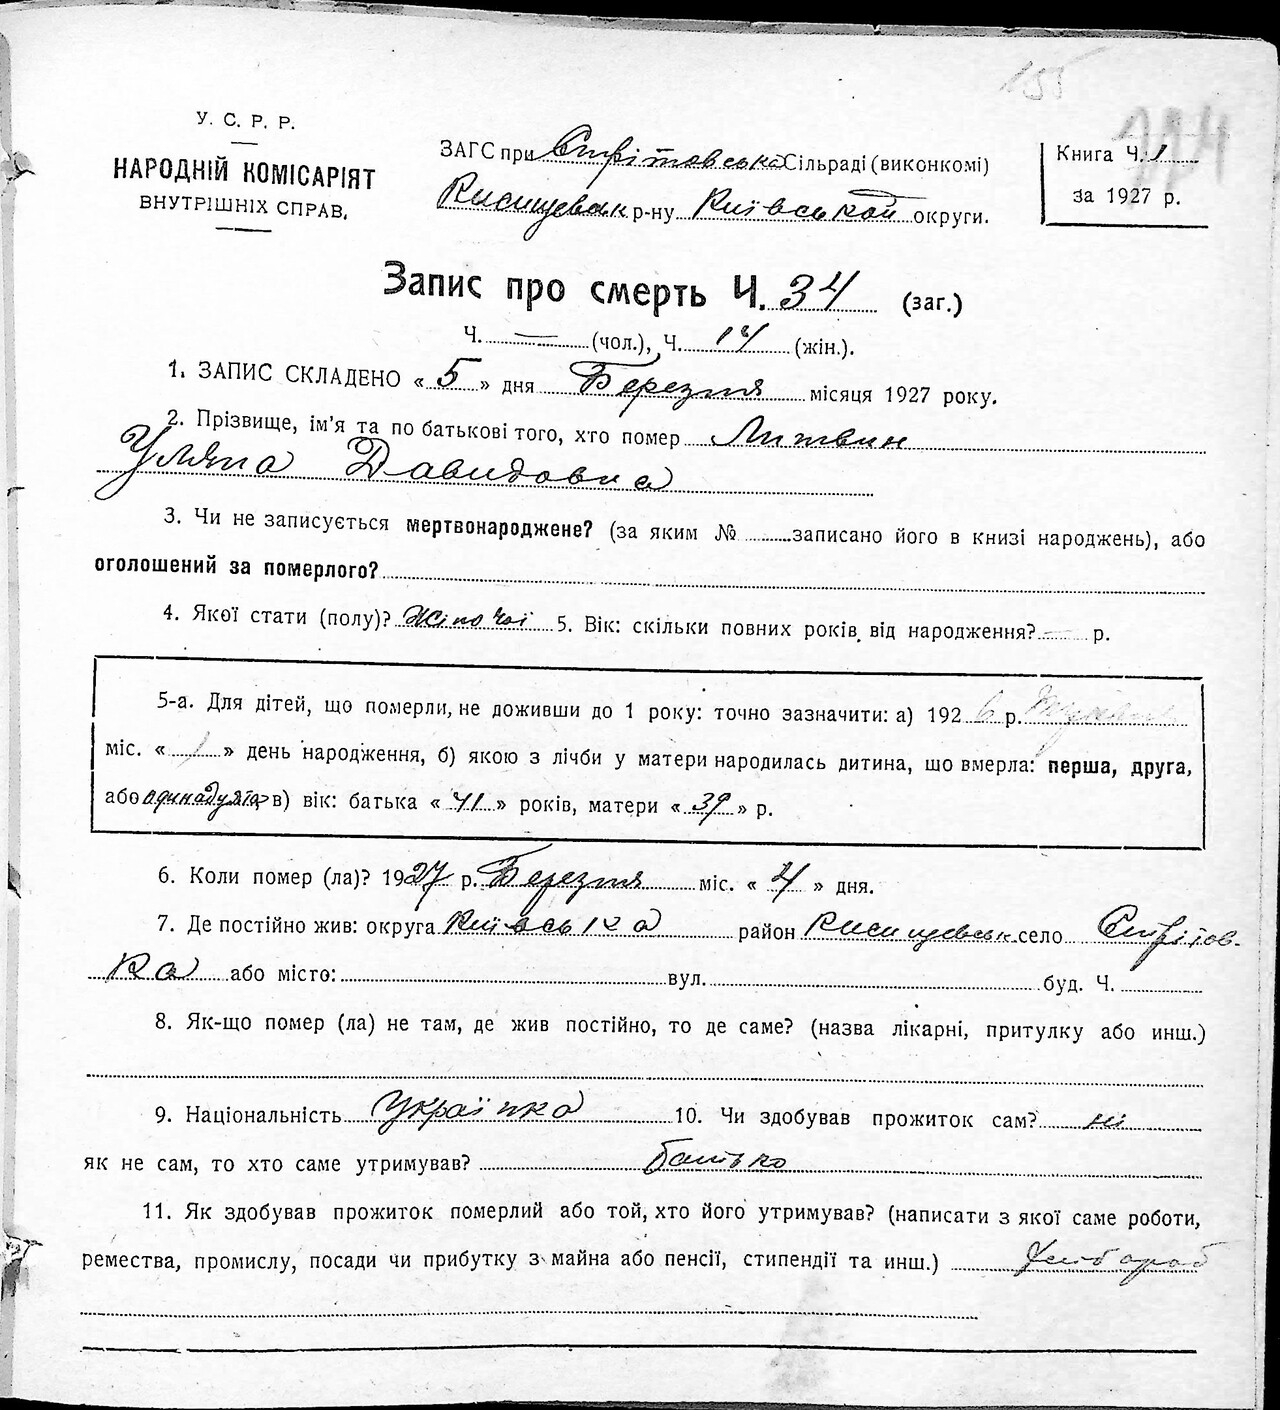 155
У. С. Р. Р.
НАРОДНІЙ КОМІСАРІЯТ
ВНУТРІШНІХ СПРАВ.
ЗАГС при Стрітовській Сільраді (виконкомі)
р-ну Київської округи.
Книга Ч. 1
за 1927 р.
Запис про смерть Ч. 34 (заг.)
Ч. — (чол.), Ч. 14 (жін.).
1. ЗАПИС СКЛАДЕНО « 5 » дня Березня місяця 1927 року.
2. Прізвище, ім'я та по батькові того, хто помер Литвин
Уляна Давидовна
3. Чи не записується мертвонароджене? (за яким № записано його в книзі народжень), або
оголошений за померлого?
4. Якої стати (полу)? Жіночої 5. Вік: скільки повних років від народження? — р.
5-а. Для дітей, що померли, не доживши до 1 року: точно зазначити: а) 192 6 р.
міс. « 1 » день народження, б) якою з лічби у матери народилась дитина, що вмерла: перша, друга,
або одинадцята, в) вік: батька « 41 » років, матери « 39 » р.
6. Коли помер (ла)? 1927 р. Березня міс. « 4 » дня.
7. Де постійно жив: округа Київська район село Стрітов-
ка або місто: вул. буд. Ч.
8. Як-що помер (ла) не там, де жив постійно, то де саме? (назва лікарні, притулку або инш.)
9. Національність Українка 10. Чи здобував прожиток сам? ні
як не сам, то хто саме утримував? батько
11. Як здобував прожиток померлий або той, хто його утримував? (написати з якої саме роботи,
ремества, промислу, посади чи прибутку з майна або пенсії, стипендії та инш.) Хлібороб